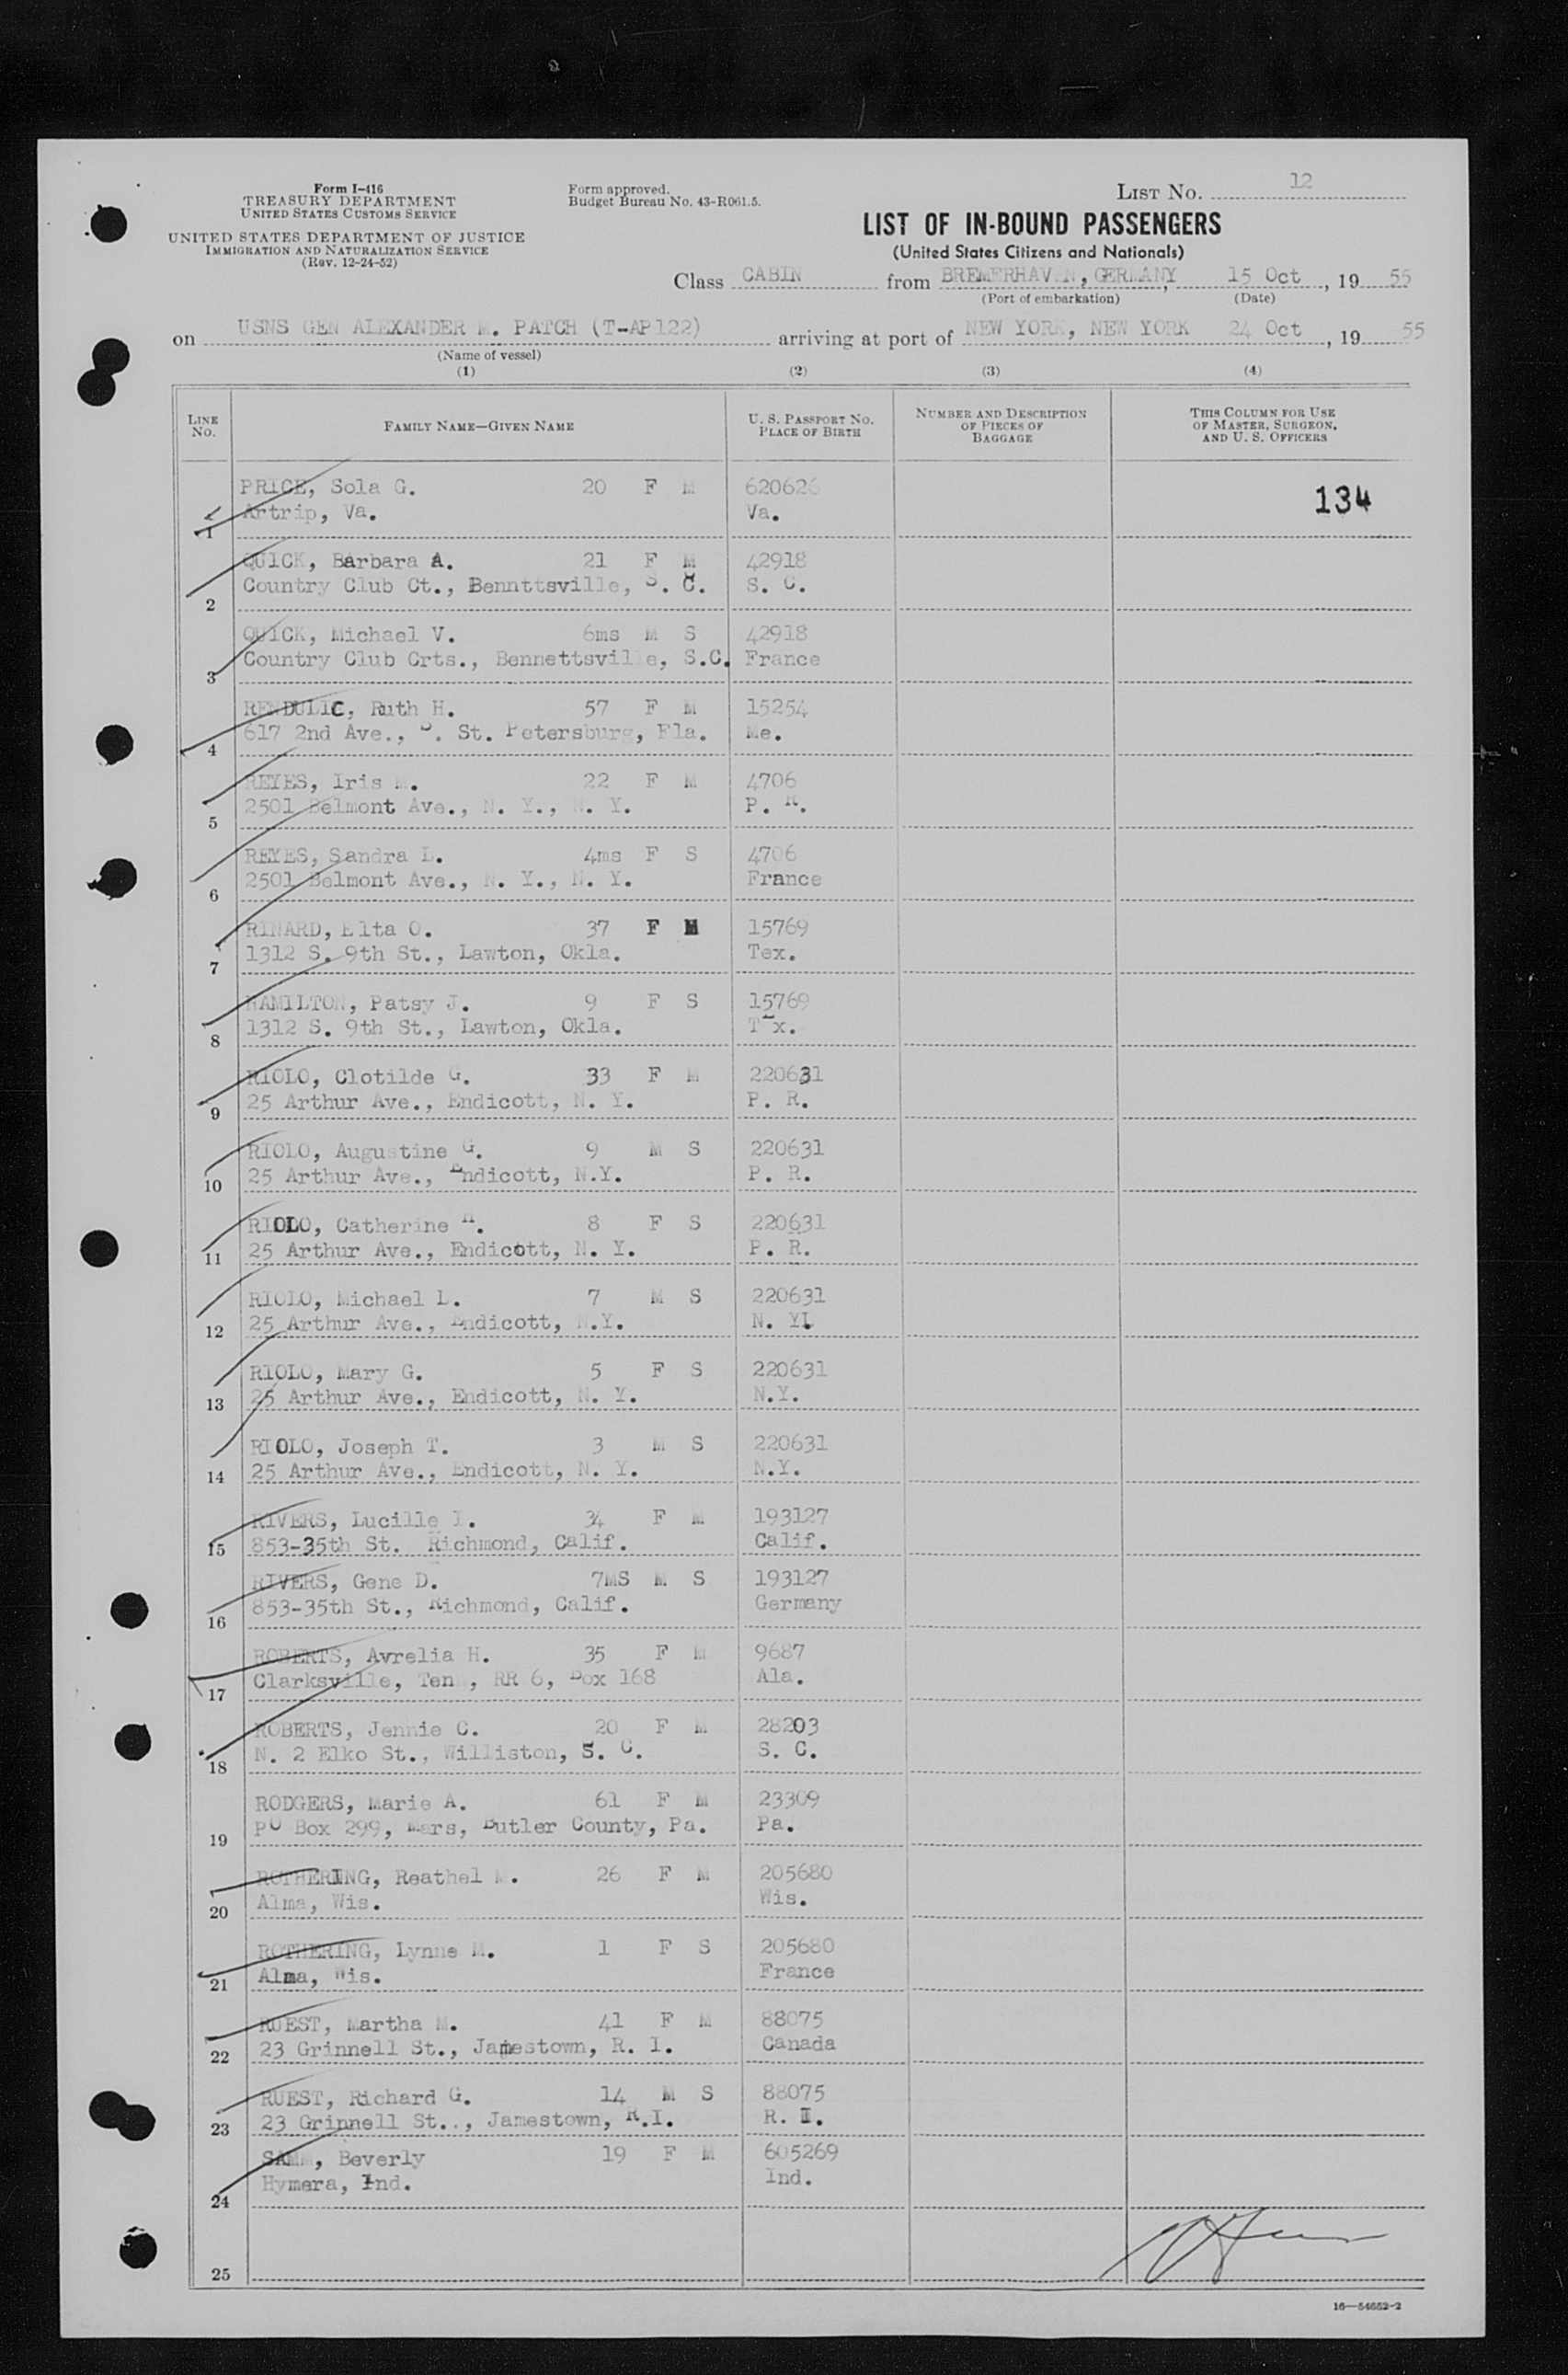 Form I-416
TREASURY DEPARTMENT
UNITED STATES CUSTOMS SERVICE
UNITED STATES DEPARTMENT OF JUSTICE
IMMIGRATION AND NATURALIZATION SERVICE
(Rev. 12-24-52)
Form approved.
Budget Bureau No. 43-R061.5.
LIST NO. 12
LIST OF IN-BOUND PASSENGERS
(United States Citizens and Nationals)
Class CABIN from BREMERHAVEN, GERMANY, 15 Oct, 19 55
(Port of embarkation) (Date)
on USNS GEN ALEXANDER M. PATCH (T-AP122) arriving at port of NEW YORK, NEW YORK 24 Oct, 19 55
(Name of vessel)
(1) (2) (3) (4)
LINE NO. FAMILY NAME—GIVEN NAME U. S. PASSPORT NO. PLACE OF BIRTH NUMBER AND DESCRIPTION OF PIECES OF BAGGAGE THIS COLUMN FOR USE OF MASTER, SURGEON, AND U. S. OFFICERS
PRICE, Sola G. 20 F M 620626 134
1 Artrip, Va. Va.
QUICK, Barbara A. 21 F M 42918
2 Country Club Ct., Bennttsville, S. C. S. C.
QUICK, Michael V. 6ms M S 42918
3 Country Club Crts., Bennettsville, S.C. France
RENDULIC, Ruth H. 57 F M 15254
4 617 2nd Ave., S. St. Petersburg, Fla. Me.
REYES, Iris M. 22 F M 4706
5 2501 Belmont Ave., N. Y., N. Y. P. R.
REYES, Sandra L. 4ms F S 4706
6 2501 Belmont Ave., N. Y., N. Y. France
RINARD, Elta O. 37 F M 15769
7 1312 S. 9th St., Lawton, Okla. Tex.
HAMILTON, Patsy J. 9 F S 15769
8 1312 S. 9th St., Lawton, Okla. Tex.
RIOLO, Clotilde G. 33 F M 220631
9 25 Arthur Ave., Endicott, N. Y. P. R.
RIOLO, Augustine G. 9 M S 220631
10 25 Arthur Ave., Endicott, N.Y. P. R.
RIOLO, Catherine H. 8 F S 220631
11 25 Arthur Ave., Endicott, N. Y. P. R.
RIOLO, Michael L. 7 M S 220631
12 25 Arthur Ave., Endicott, N.Y. N. Y.
RIOLO, Mary G. 5 F S 220631
13 25 Arthur Ave., Endicott, N. Y. N.Y.
RIOLO, Joseph T. 3 M S 220631
14 25 Arthur Ave., Endicott, N. Y. N.Y.
RIVERS, Lucille I. 34 F M 193127
15 853-35th St. Richmond, Calif. Calif.
RIVERS, Gene D. 7MS M S 193127
16 853-35th St., Richmond, Calif. Germany
ROBERTS, Avrelia H. 35 F M 9687
17 Clarksville, Tenn, RR 6, Box 168 Ala.
ROBERTS, Jennie C. 20 F M 28203
18 N. 2 Elko St., Williston, S. C. S. C.
RODGERS, Marie A. 61 F M 23309
19 PO Box 299, Mars, Butler County, Pa. Pa.
ROTHERING, Reathel M. 26 F M 205680
20 Alma, Wis. Wis.
ROTHERING, Lynne M. 1 F S 205680
21 Alma, Wis. France
RUEST, Martha M. 41 F M 88075
22 23 Grinnell St., Jamestown, R. I. Canada
RUEST, Richard G. 14 M S 88075
23 23 Grinnell St.., Jamestown, R.I. R. I.
SAMM, Beverly 19 F M 605269
24 Hymera, Ind. Ind.
25
16—54652-2